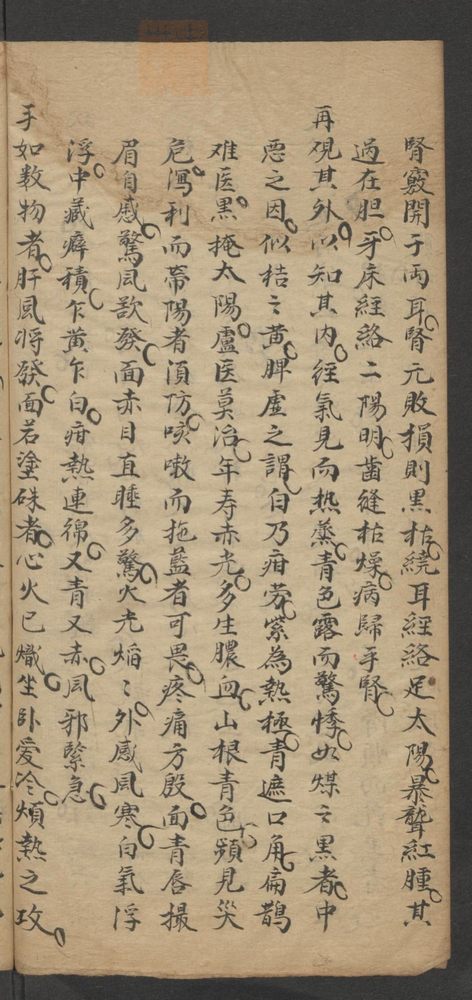 腎竅開于両耳腎元敗損則黑枯繞耳經絡足太陽暴聾紅腫其
過在胆牙床經絡二陽明齒縫枯燥病歸手腎
再視其外以知其内徑氣見而热蒸青色露而驚悸如煤之黑者中
惡之因似桔之黄脾虚之謂白乃疳劳紫為熱極青遮口角扁鵲
难医黑掩太陽盧医莫治年寿赤光多生膿血山根青色頻見災
危瀉利而帶陽者湏防咳嗽而拖藍者可畏疼痛方殷面青唇撮
眉自感驚風欲發面赤目直睡多驚火光熖〻外感風寒白氣浮
浮中藏癖積乍黄乍白疳熱連綿又青又赤風邪緊急
手如数物者肝風將發面若塗硃者心火已熾坐卧爱冷煩熱之攻